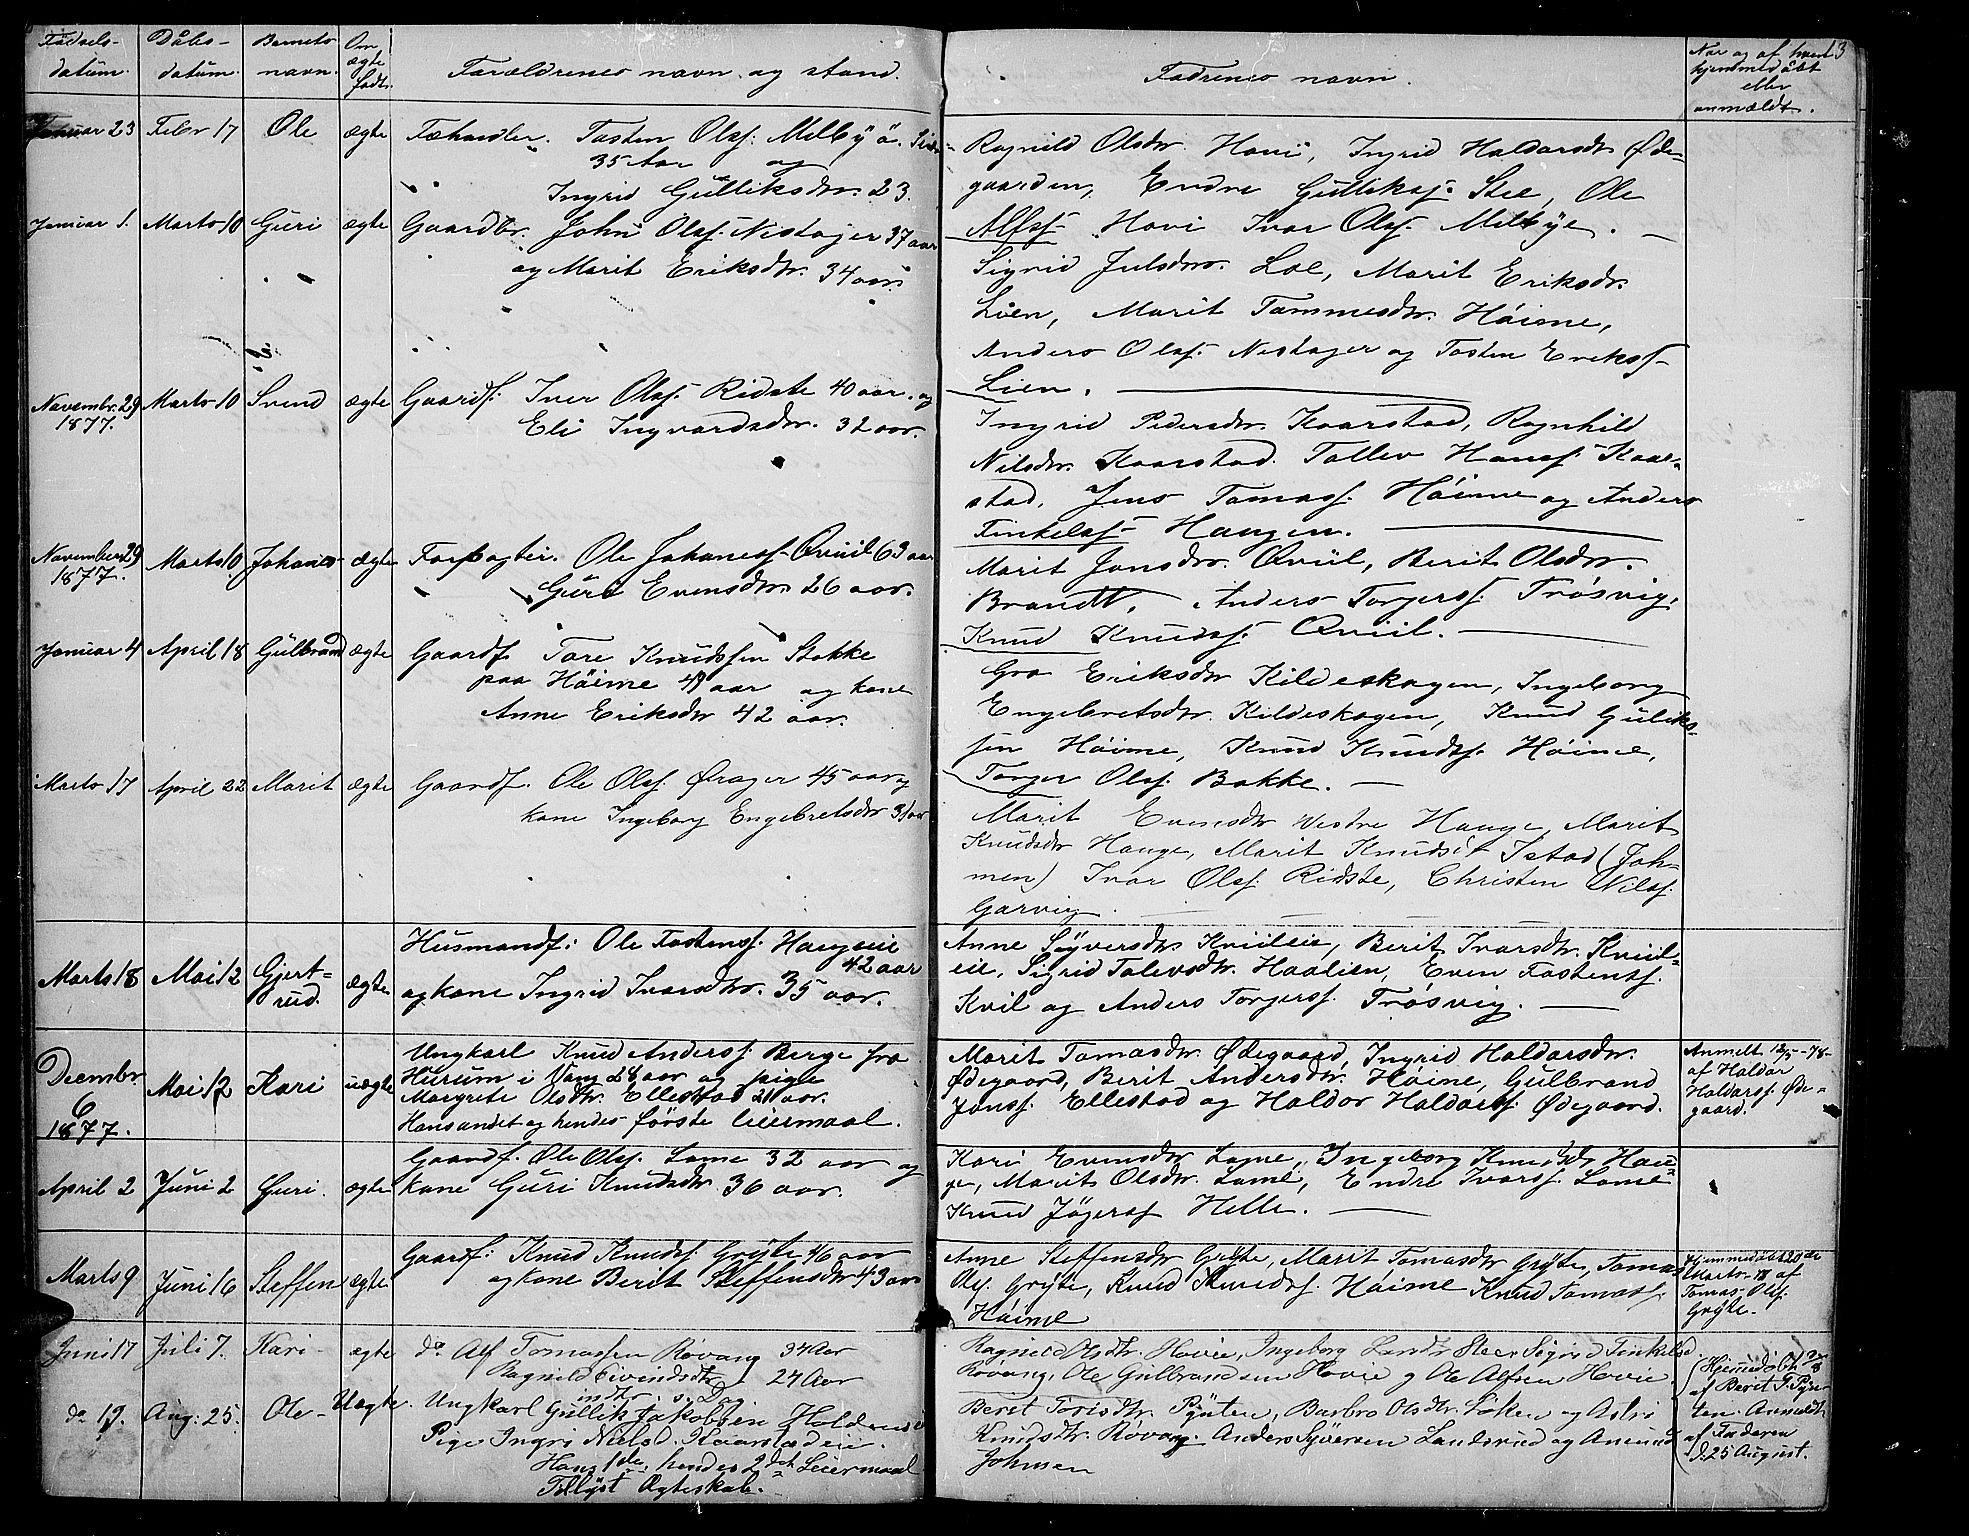 Fødsels-
datum.
Dåbs-
datum.
Barnets
navn.
Om
ægte
født.
Forældrenes navn og stand.
Fadrenes navn.
Nar og af hvem
hjemmedöbt
eller
anmældt.
3
Januar 23 Febr 17 Ole ægte Tosten Olss. Melbÿ
35 Aar og
Ingrid Gulliksdtr. 23.
Ragnild Olsdtr. Hovi, Ingrid Haldorsdtr Øde-
gaarden, Endre Gulliks. Stee, Ole
Alfss. Hovi Ivar Olss. Melbÿe.
Januar 1. Marts 10 Guri ægte Gaardbr. John Olss. Nistajer 37 aar
og Marit Eriksdtr. 34 aar.
Sigrid Julsdtr. Loe, Marit Eriksdtr.
Lien, Marit Tommesdtr. Höime,
Anders Olss. Nestajer og Tosten Erikss.
Lien.
Novembr. 29
1877.
Marts 10 Svend ægte Gaardf. Iver Olss. Ridste 40 aar. og
Eli Ingvardsdtr. 32 aar.
Ingrid Pedersdtr. Kaarstad, Ragnhild
Nilsdtr. Kaarstad. Tollev Hanss. Kaar-
stad, Jens Tomass. Höime og Anders
Tinkelss. Haugen.
November 29
1877.
Marts 10 Johanes ægte Forpagter. Ole Johaness. Qviil 63 aar
Guri Evensdtr. 26 aar.
Marit Jonsdtr. Qviil, Berit Olsdtr.
Brandt, Anders Torgerss. Trösvig,
Knud Knudss. Qviil.
Januar 4 April 18 Gülbrand ægte Gaardf. Tore Knudssen Stokke
paa Höime 49 aar og kone
Anne Eriksdtr 42 aar.
Gro Eriksdtr Kildeskogen, Ingeborg
Engebretsdtr. Kildeskogen, Knud Guliks-
sen Höime, Knud Knudss. Höime,
Torger Olss. Bakke.
Marts 17 April 22 Marit ægte Gaardf. Ole Olss. Ørager 45 aar og
kone Ingeborg Engebretsdtr 31 aar
Marit Evensdtr Westre Hauge, Marit
Knudsdtr Hauge, Marit Knudsdt Istad (Joh-
men) Ivar Olss. Ridste, Christen Nilss.
Garvig.
Marts 18 Mai 12 Gjert-
rud. ægte Husmandf: Ole Tostenss. Haugseie
42 aar
og kone Ingrid Ivarsdtr. 35 aar.
Anne Syversdtr Kviileie, Berit Ivarsdtr. Kviil-
eie, Sigrid Tolevsdtr. Haalien, Even Tostenss.
Kvil og Anders Torgerss. Trösvig.
Decembr.
6
1877.
Mai 12 Kari uægte Ungkarl Knud Anderss. Berge fra
Hurum i Vang 28 aar og pige
Margrete Olsdtr. Ellestad 21 aar.
Hans andet og hendes förste leiermaal.
Marit Tomasdtr. Ødegaard, Ingrid Haldorsdtr.
Ødegaard, Berit Andersdtr. Höime, Gulbrand
Jonss. Ellestad og Haldor Haldorss. Ødegaard.
Anmelt 12/5-78-
af Haldor
Haldorss. Øde-
gaard.
April 2 Juni 2 Guri. ægte Gaardf. Ole Olss. Lome 32 aar og
kone Guri Knudsdtr 36 aar.
Kari Evensdtr Lome, Ingeborg Knudsdtr Hau-
ge, Marit Olsdtr. Lome, Endre Ivarss. Lome
Knud Jögerss Helle.
Marts 9 Juni 16 Steffen ægte Gaardf: Knud Knudss. Gryte 46 aar
og kone Berit Steffensdtr 43 aar
Anne Steffensdtr Gryte, Marit Tomasdtr Gryte, Tomas
Olss. Gryte, Knud Knudss. Höime Knud Tomass.
Höime
Hjemmedöbt 20de
Marts 78 af
Tomas Olss.
Gryte.
Juni 17 Juli 7. Kari ægte do Alf Tomassen Rövang 34 Aar
Ragnild Eivindsdtr 24 Aar
Ragnild Olsdtr. Hovie, Ingeborg Steer Sigrid
Rövang, Ole Gulbrandsen Hovie og Ole Alfsen Hovie.
do 19. Aug. 25. Ole Uægte. Ungkarl Gullik Jakobsen
Pige Ingri Nielsd. Kaarstadeie.
Hans 1de, hendes 2det Leiermaal
Tillyst Ægteskab.
Beret Torisdtr. Pynten, Barbro Olsdtr. Loken og Astri
Knudsdtr. Rövang. Anders Syversen Landsrud og Amund
Johnsen
af Beret T. Pyn-
ten. Anmeldt
af Faderen
d. 25 August.